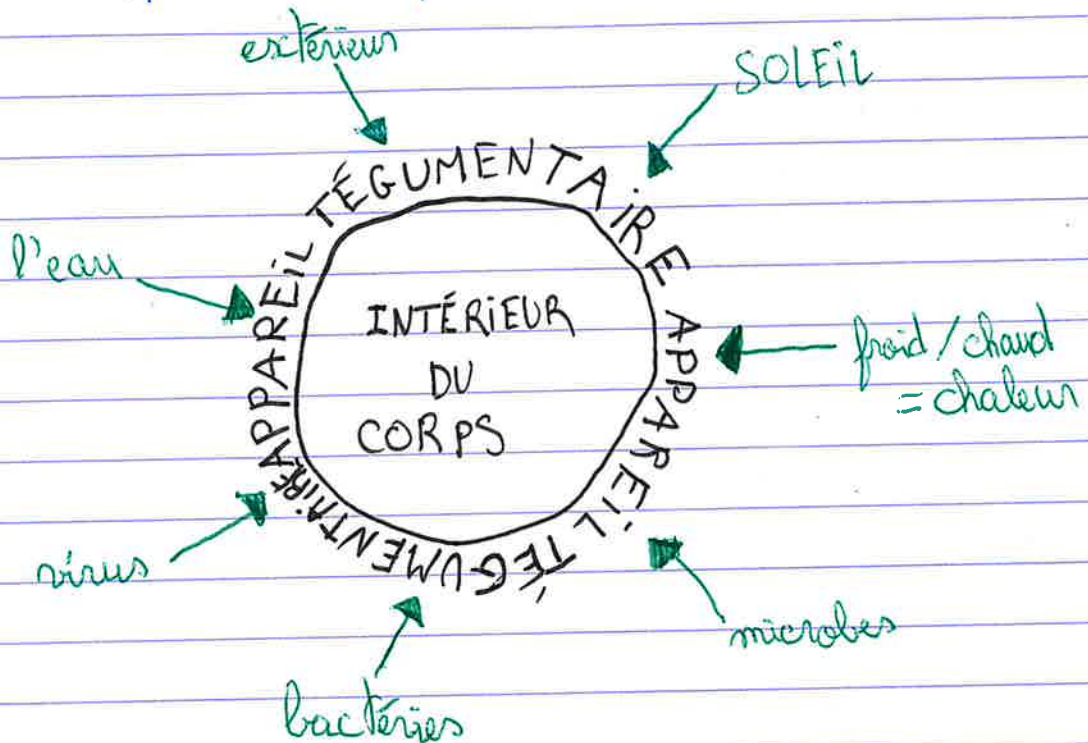 extérieur
SOLEIL
APPAREIL TÉGUMENTAIRE APPAREIL TÉGUMENTAIRE
l'eau
INTÉRIEUR
DU
CORPS
froid/chaud
= chaleur
virus
microbes
bactéries